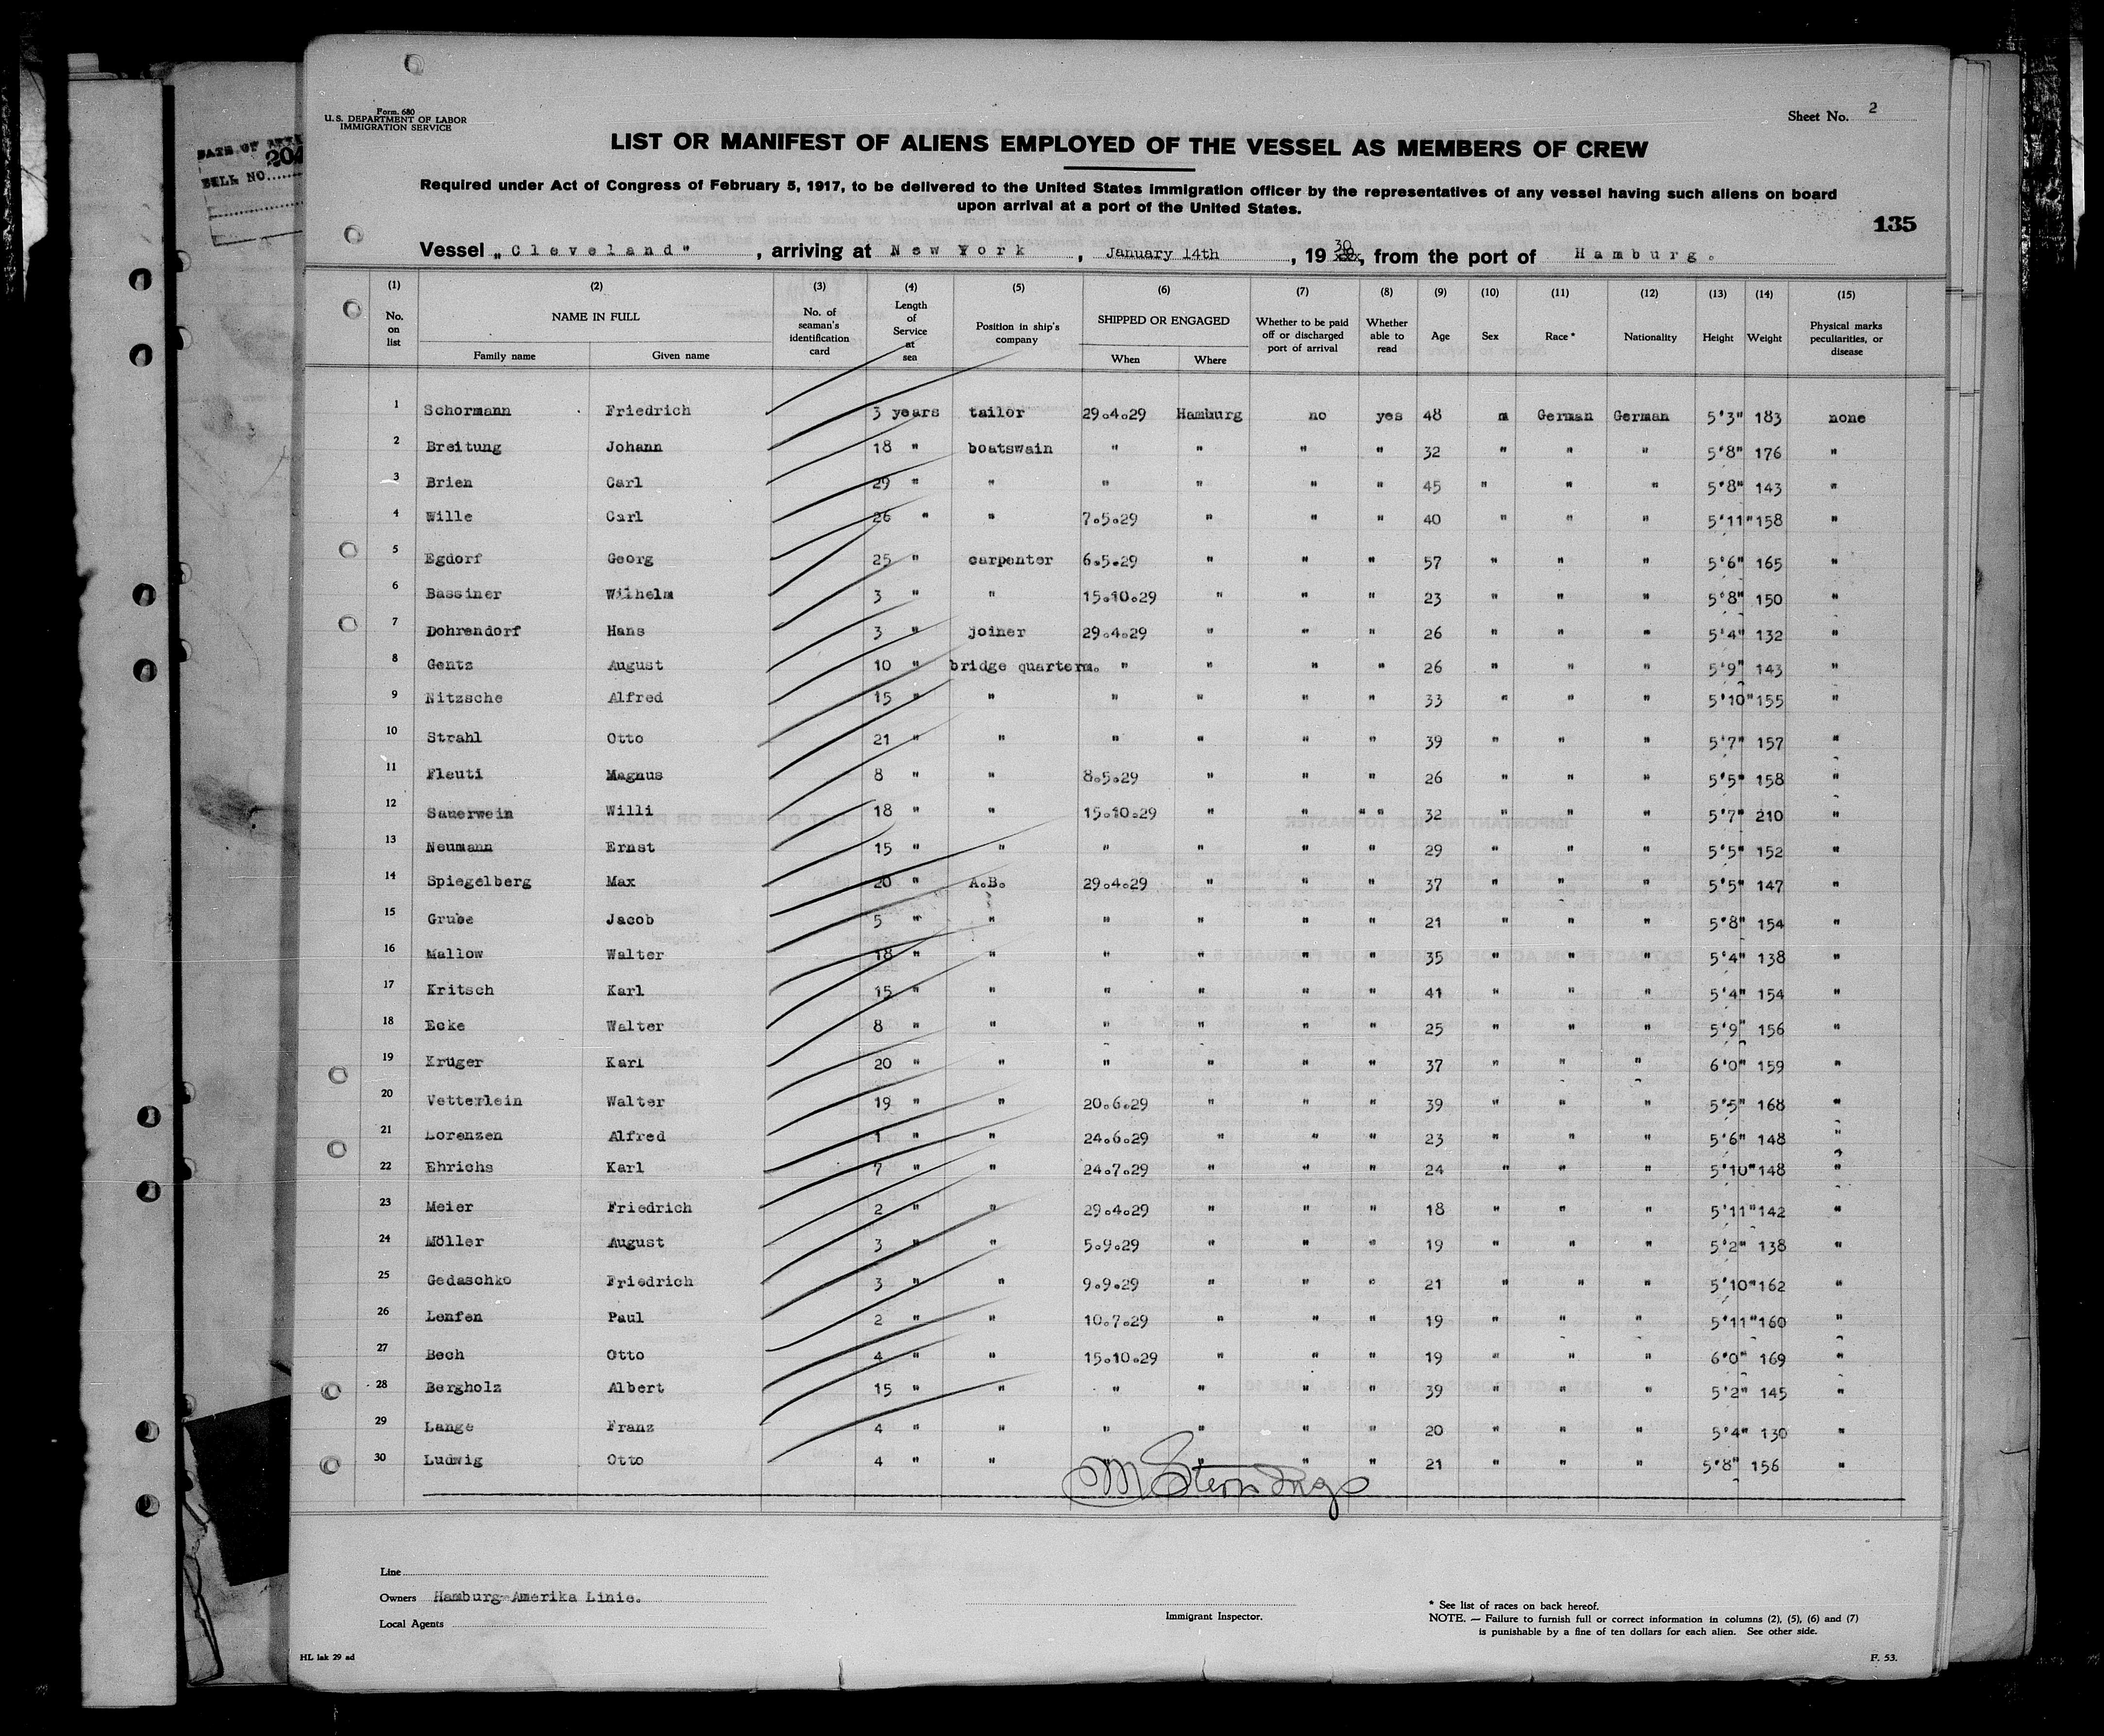 DATE OF
204
BELL NO.
Form 680
U.S. DEPARTMENT OF LABOR
IMMIGRATION SERVICE
Sheet No. 2
LIST OR MANIFEST OF ALIENS EMPLOYED OF THE VESSEL AS MEMBERS OF CREW
Required under Act of Congress of February 5, 1917, to be delivered to the United States Immigration officer by the representatives of any vessel having such aliens on board
upon arrival at a port of the United States.
135
Vessel „Cleveland", arriving at New York, January 14th, 1930, from the port of Hamburg.
(1) (2) (3) (4) (5) (6) (7) (8) (9) (10) (11) (12) (13) (14) (15)
No. on list NAME IN FULL Family name Given name No. of seaman's identification card Length of Service at sea Position in ship's company SHIPPED OR ENGAGED When Where Whether to be paid off or discharged port of arrival Whether able to read Age Sex Race * Nationality Height Weight Physical marks peculiarities, or disease
1 Schormann Friedrich 3 years tailor 29.4.29 Hamburg no yes 48 m German German 5'3" 183 none
2 Breitung Johann 18 " boatswain " " " " 32 " " " 5'8" 176 "
3 Brien Carl 29 " " " " " " 45 " " " 5'8" 143 "
4 Wille Carl 26 " " 7.5.29 " " " 40 " " " 5'11" 158 "
5 Egdorf Georg 25 " carpenter 6.5.29 " " " 57 " " " 5'6" 165 "
6 Bassiner Wilhelm 3 " " 15.10.29 " " " 23 " " " 5'8" 150 "
7 Dohrendorf Hans 3 " joiner 29.4.29 " " " 26 " " " 5'4" 132 "
8 Gentz August 10 " bridge quarterm. " " " " 26 " " " 5'9" 143 "
9 Nitzsche Alfred 15 " " " " " " 33 " " " 5'10" 155 "
10 Strahl Otto 21 " " " " " " 39 " " " 5'7" 157 "
11 Fleuti Magnus 8 " " 8.5.29 " " " 26 " " " 5'5" 158 "
12 Sauerwein Willi 18 " " 15.10.29 " " " " 32 " " " 5'7" 210 "
13 Neumann Ernst 15 " " " " " " 29 " " " 5'5" 152 "
14 Spiegelberg Max 20 " A.B. 29.4.29 " " " 37 " " " 5'5" 147 "
15 Grube Jacob 5 " " " " " " 21 " " " 5'8" 154 "
16 Mallow Walter 18 " " " " " " 35 " " " 5'4" 138 "
17 Kritsch Karl 15 " " " " " " 41 " " " 5'4" 154 "
18 Ecke Walter 8 " " " " " " 25 " " " 5'9" 156 "
19 Krüger Karl 20 " " " " " " 37 " " " 6'0" 159 "
20 Vetterlein Walter 19 " " 20.6.29 " " " 39 " " " 5'5" 168 "
21 Lorenzen Alfred 1 " " 24.6.29 " " " 23 " " " 5'6" 148 "
22 Ehrichs Karl 7 " " 24.7.29 " " " 24 " " " 5'10" 148 "
23 Meier Friedrich 2 " " 29.4.29 " " " 18 " " " 5'11" 142 "
24 Möller August 3 " " 5.9.29 " " " 19 " " " 5'2" 138 "
25 Gedaschko Friedrich 3 " " 9.9.29 " " " 21 " " " 5'10" 162 "
26 Lenfen Paul 2 " " 10.7.29 " " " 19 " " " 5'11" 160 "
27 Bech Otto 4 " " 15.10.29 " " " 19 " " " 6'0" 169 "
28 Bergholz Albert 15 " " " " " " 39 " " " 5'2" 145 "
29 Lange Franz 4 " " " " " " 20 " " " 5'4" 130 "
30 Ludwig Otto 4 " " " " " 21 " " " 5'8" 156 "
Line
Owners Hamburg-Amerika Linie.
Local Agents
Immigrant Inspector.
* See list of races on back hereof.
NOTE. — Failure to furnish full or correct information in columns (2), (5), (6) and (7)
is punishable by a fine of ten dollars for each alien. See other side.
HL lak 29 ad
F. 53.